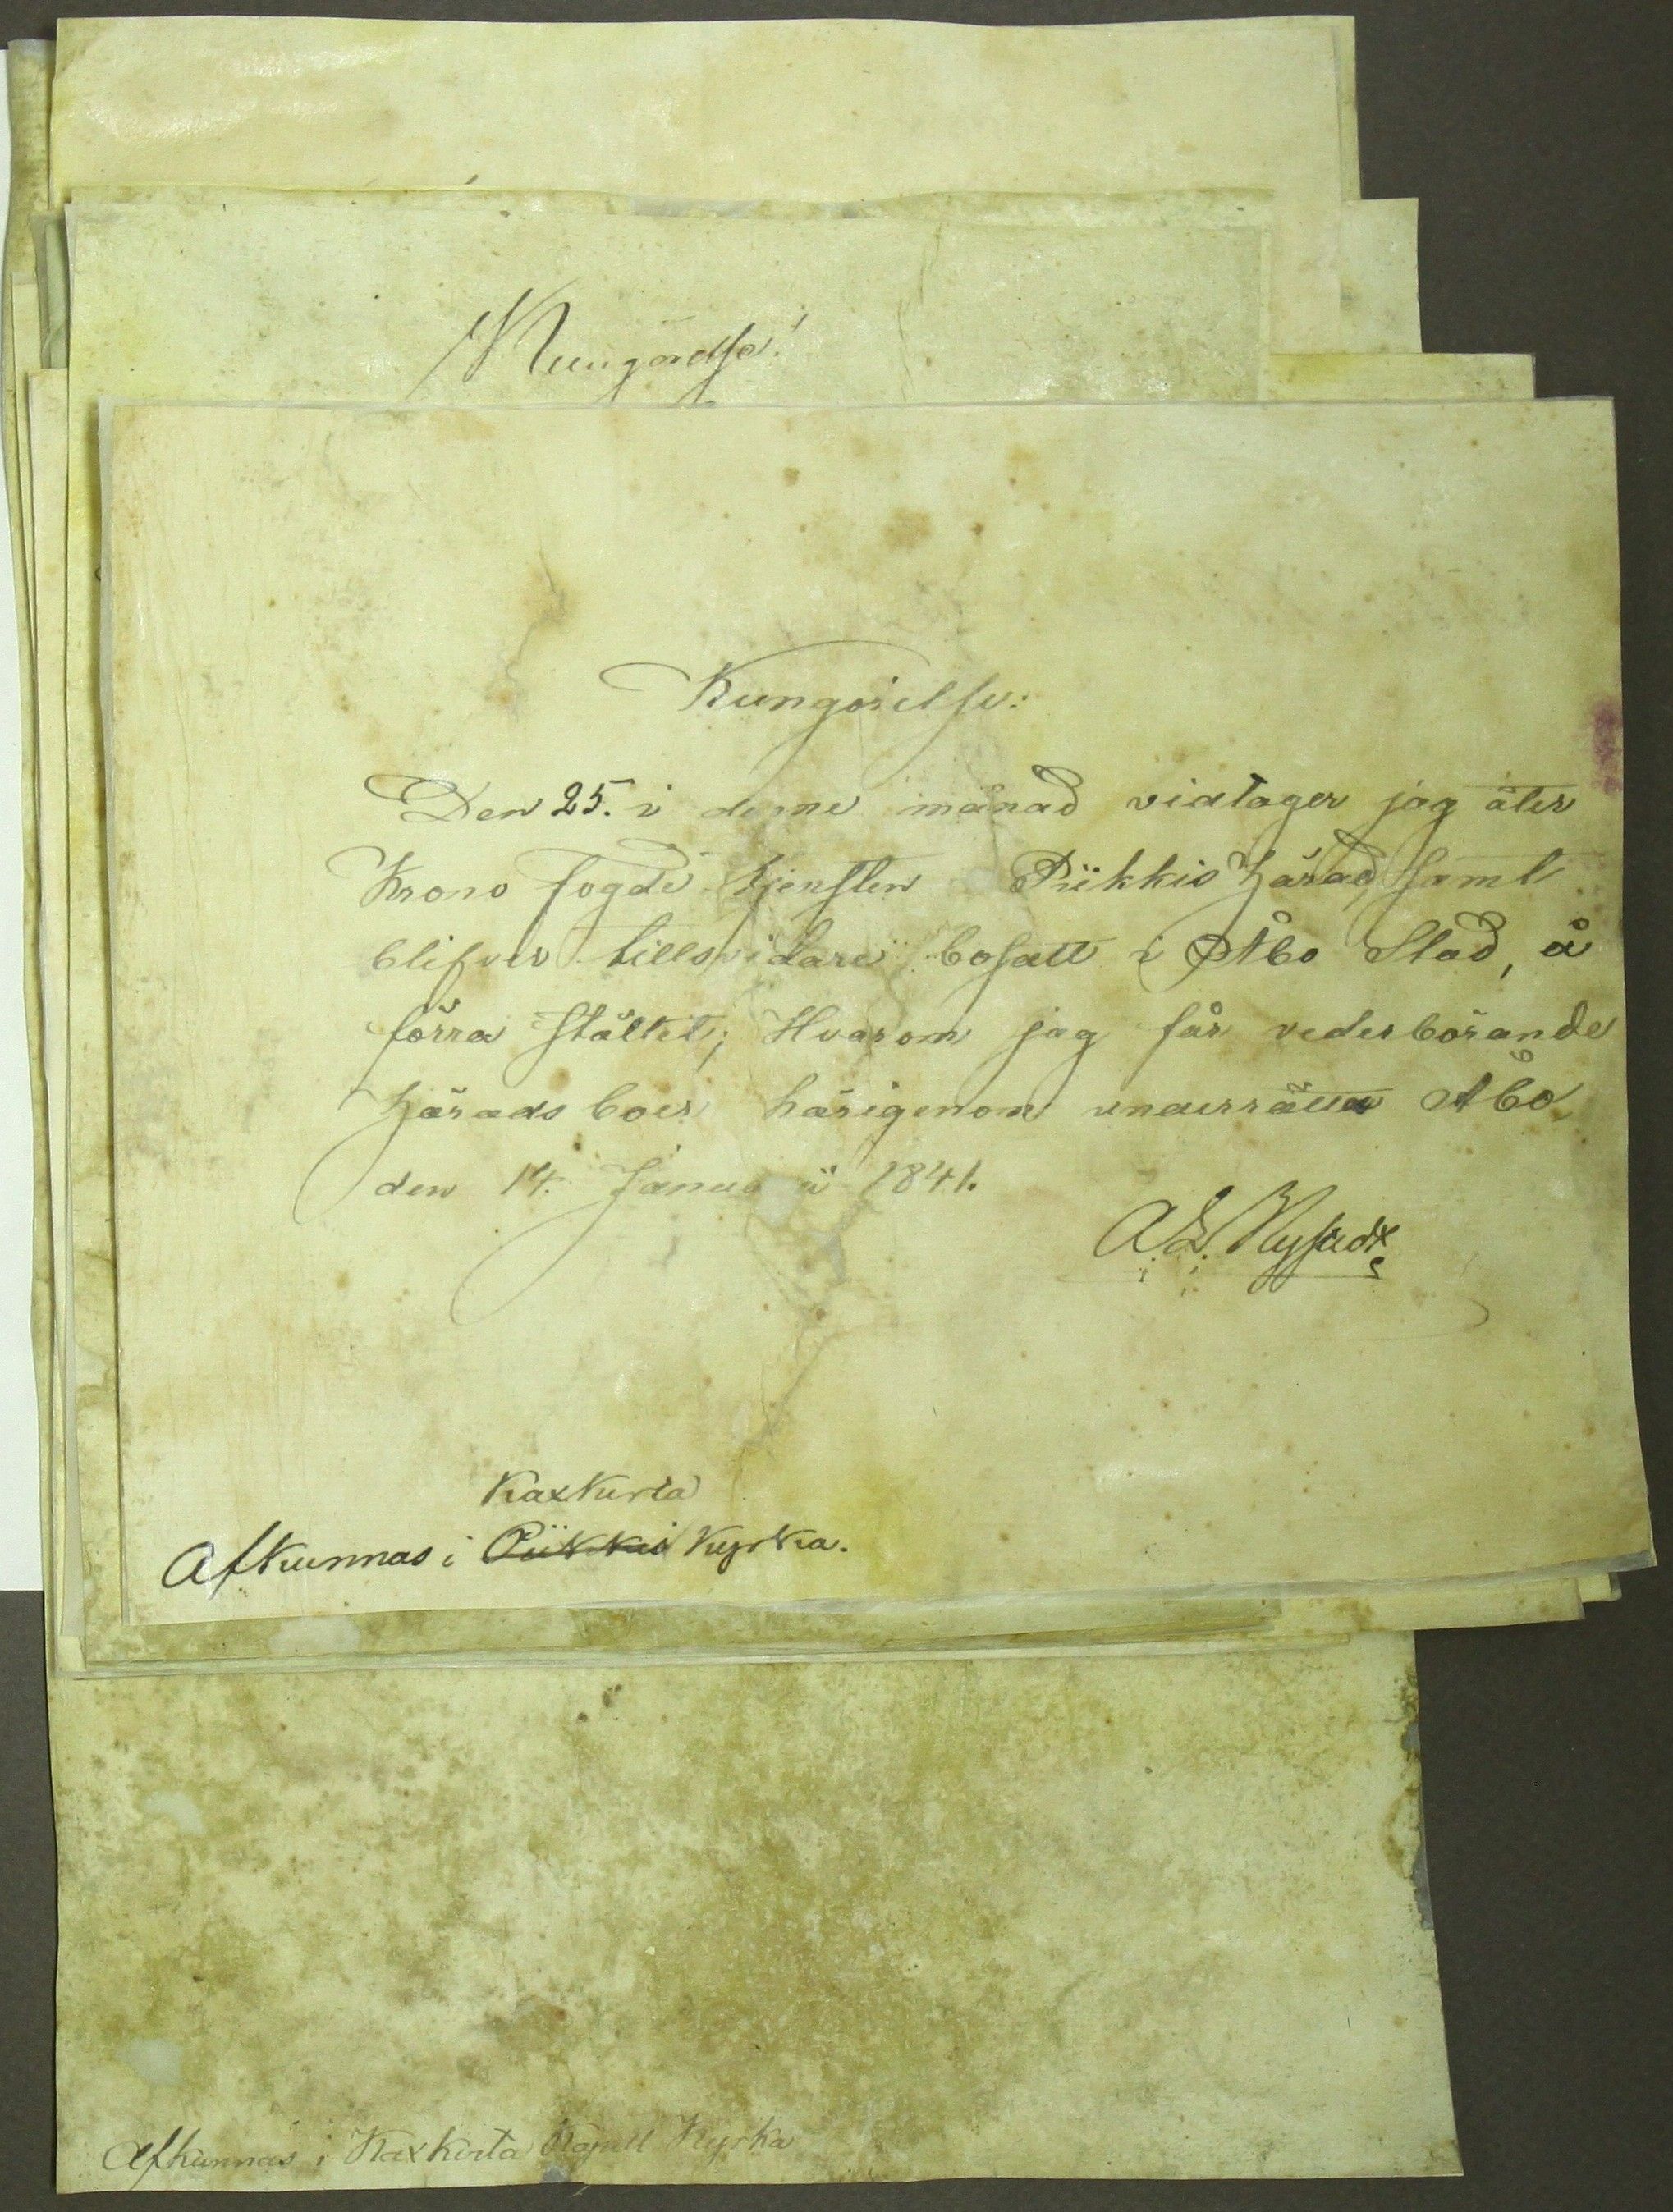 Kungörelse!
Kungörelse:
Den 25. i denne månad vidtager jag åter
Krono fogde tjensten Piikkis härad, samt
blifver tillsvidare bosatt i Åbo Stad, å
förra stället; Hvarom jag får vederbörande
häradsboer härigenom underrätta Åbo
den 14. Janua ii 1841.
A. L. Nystedt
Kaxkerta
Afkunnas i Piikkis Kyrka.
Afkunnas i Kaxkerta Kapell Kyrka